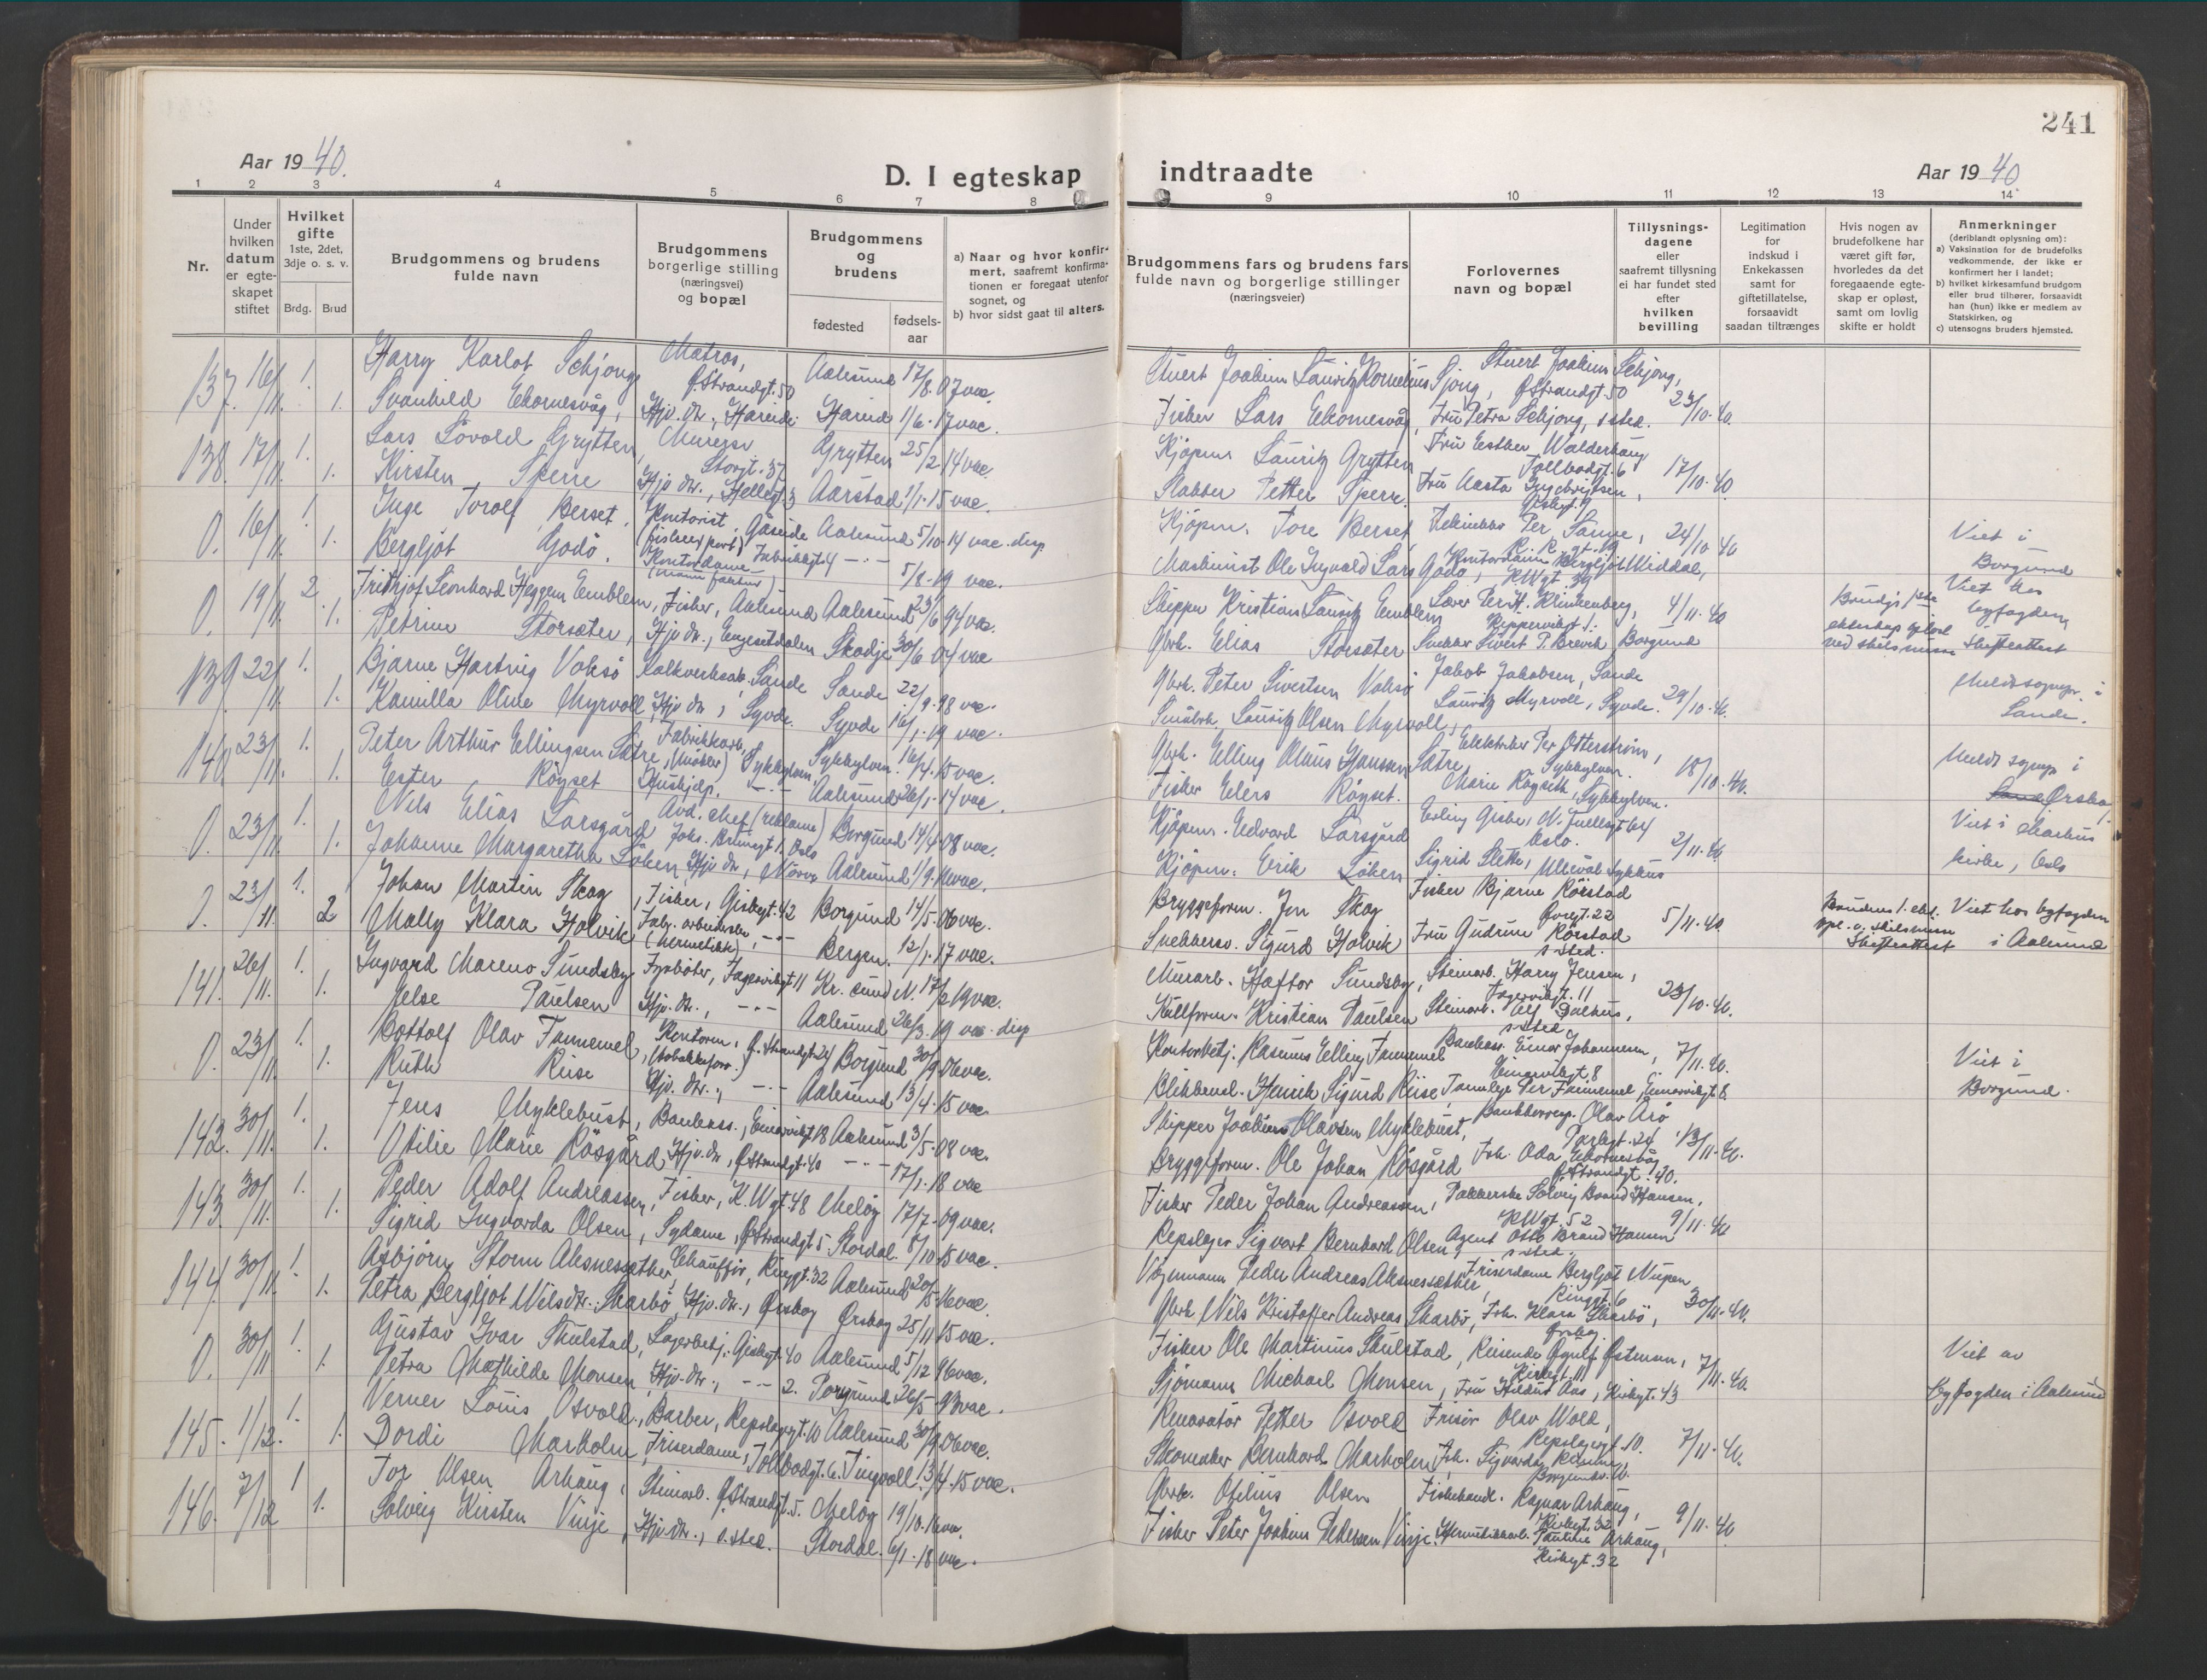 241
Aar 1940.
D. I egteskap indtraadte
Aar 1940
1 2 3 4 5 6 7 8 9 10 11 12 13 14
Nr.
Under hvilken datum er egteskapet stiftet
Hvilket gifte 1ste, 2det, 3dje o. s. v.
Brdg. Brud
Brudgommens og brudens fulde navn
Brudgommens borgerlige stilling (næringsvei) og bopæl
Brudgommens og brudens
fødested
fødsels-aar
a) Naar og hvor konfirmert, saafremt konfirmationen er foregaat utenfor sognet, og
b) hvor sidst gaat til alters.
Brudgommens fars og brudens fars fulde navn og borgerlige stillinger (næringsveier)
Forlovernes navn og bopæl
Tillysningsdagene eller saafremt tillysning ei har fundet sted efter hvilken bevilling
Legitimation for indskud i Enkekassen samt for giftetillatelse, forsaavidt saadan tiltrænges
Hvis nogen av brudefolkene har været gift før, hvorledes da det foregaaende egteskap er opløst, samt om lovlig skifte er holdt
Anmerkninger (deriblandt oplysning om):
a) Vaksination for de brudefolks vedkommende, der ikke er konfirmert her i landet;
b) hvilket kirkesamfund brudgom eller brud tilhører, forsaavidt han (hun) ikke er medlem av Statskirken, og
c) utensogns bruders hjemsted.
137. 16/11. 1. Harry Karlot Schjong Matros, Ø. Strandgt. 50 Aalesund 17/8.07 vac. Stuert Joakim Lauritz Kornelius Sjong, Stuert Joakim Schjong, Ø Strandgt. 50 23/10.40.
1. Svanhild Ekornesvåg, Hjv. dtr., Hareid. Hareid 1/6.17 vac. Fisker Lars Ekornesvåg, Fru Petra Schjong, s. sted.
138. 17/11. 1. Lars Løvold Grytten, Murersv. Storgt. 37 Grytten 25/2.14 vac. Kjøpm. Lauritz Grytten Fru Esther Walderhaug Tollbodgt. 6 17/10.40.
1. Kirsten Sperre Hjv. dtr., Hellegt. 3 Aarstad 1/1.15 vac. Slakter Petter Sperre. Fru Aasta Ingebrigtsen,
0. 16/11. 1. Inge Torolf Berset, Kontorist, Gåseide (fiskeexport) Aalesund 5/10.14 vac. disp. Kjøpm. Tore Berset Per Sanne, 24/10.40 Viet i
1. Bergljot Godø. Kontordame 5/8.19 vac. Maskinist Ole Ingvald Lars Godø, Kontordame Bergljot Middal, KWgt. 39 Borgund
0. 19/11. 2. Fridthjof Leonhard Heggem Emblem, Fisker, Aalesund Aalesund 23/6.94 vac. Skipper Kristian Lauritz Emblem Lærer Per H. Krinkenberg, Kippervikgt. 1. 4/11.40 Brudgs 1ste ekteskap opløst ved skilsmisse Viet hos byfogden Skifteattest
1. Petrine Storsæter, Hjv dtr., Engesetdalen Skodje 30/6.04 vac Gbrk. Elias Storsæter Snekker Sivert P. Brevik Borgund
139. 22/11. 1. Bjarne Hartvig Voksø Kalkverksarb. Sande Sande 22/9.98 vac. Gbrk. Peter Sivertsen Voksø Jakob Jakobsen, Sande 29/10.40. Meldt sognepr. i
1. Kamilla Oline Myrvoll, Hjv dtr., Syvde. Syvde 16/1.19 vac. Småbrk. Lauritz Olsen Myrvoll, Lauritz Myrvoll, Syvde. Sande.
140. 23/11. 1. Peter Arthur Ellingsen Sætre, Fabrikkarb. (møbler) Sykkylven. Sykkylven. 16/4.15 vac. Gbrk. Elling Olaus Hansen Sætre, Elektriker Per Otterstrøm, Sykkylven. 18/10.40. Meldt sognepr i
1. Ester Røyset Hushjelp. Aalesund 26/1.14 vac. Fisker Elers Røyset. Marie Røyseth, Sykkylven. Ørskog
0. 23/11. 1. Nils Elias Larsgård Avd. chef (reklame) Johs. Brunsgt 1. Oslo Borgund 14/4.08 vac. Kjøpm. Edvard Larsgård Erling Giske, N. Juellsgt 64 Oslo. 2/11.40. Viet i Markus
1. Johanne Margaretha Løken, Hjv dtr, Nørve Aalesund 1/9.16 vac. Kjøpm. Erik Løken Sigrid Slette, Ullevål Sykehus kirke, Oslo
0. 23/11. 1. Johan Martin Skog, Fisker, Giskegt. 42 Borgund 14/5.06 vac. Bryggeform. Jon Skog Fisker Bjarne Rørstad Øvregt. 22 5/11.40. Brudens 1. ekt. opl. v. skilsmisse Skifteattest Viet hos byfogden
2 Molly Klara Holvik Fabr. arbeiderske, (hermetikk) Bergen. 12/1.17 vac. Snekkersv. Sigurd Holvik Fru Gudrun Rørstad s. sted. i Aalesund
141. 26/11. 1. Ingvard Mareno Sundsby, Fyrbøter, Fagervikgt 11 Kr. sund N. 17/2.19 vac. Murarb. Haftor Sundsby, Steinarb. Harry Jensen, Fagervikgt. 11 23/10.40.
1. Jelse Paulsen Hjv. dtr., Aalesund 26/3.19 vac. disp Kullform. Kristian Paulsen Steinarb. Alf Dalhus, s. sted.
0. 23/11. 1. Bottolf Olav Fannemel, Kontorm., Ø. Strandgt. 24 (tobakksforr.) Borgund 30/9.06 vac. Kontorbetj. Rasmus Elling Fannemel Bankass. Einar Johannesen, Einarvikgt. 8 7/11.40. Viet i
1. Ruth Riise Hjv. dtr., Aalesund 13/4.15 vac. Blikkensl. Henrik Sigurd Riise, Tannlege Per Fannemel, Einarvikgt 8 Borgund.
142. 30/11. 1. Jens Myklebust, Bankass., Einarvikgt 18 Aalesund 3/5.08 vac. Skipper Joakim Olavsen Myklebust, Bankbevegt. Olav Arø Parkgt. 24 13/11.40.
1. Otilie Marie Røsgård, Hjv. dtr., Ø Strandgt. 40 17/1.18 vac Bryggeform. Ole Johan Røsgård Frk. Oda Ekornesvåg Ø Strandgt. 40.
143 30/11. 1. Peder Adolf Andreassen, Fisker, K.Wgt. 48 Meløy 17/7.09 vac. Fisker Peder Johan Andreassen, Pakkerske Solveig Brand Hansen, KWgt. 52 9/11.40
1. Sigrid Ingvarda Olsen, Sydame, Ø Strandgt 5 Stordal. 8/10.15 vac. Repslager Sigvart Bernhard Olsen, Agent Otto Brand Hansen s. sted.
144 30/11. 1. Asbjørn Storm Aksnessæther, Chauffør, Ringgt. 32 Aalesund 20/5.16 vac. Vognmann Peder Andreas Aksnessæther, Friserdame Bergljot Nupen Ringgt. 6 30/11.40.
1. Petra Bergljot Nilsdtr. Skarbø, Hjv. dtr., Ørskog Ørskog 25/11.15 vac. Gbrk Nils Kristoffer Andreas Skarbø, Frk. Klara Skarbø, Ørskog
0. 30/11 1. Gustav Ivar Skulstad, Lagerbetj., Giskegt. 40 Aalesund 5/12.96 vac. Fisker Ole Martinus Skulstad, Reisende Østensen, Kirkegt. 11 7/11.40. Viet av
1. Petra Mathilde Monsen, Hjv. dtr., 2. Porsgrund 26/5.93 vac. Sjømann Michael Monsen, Fru Hildur Aas, Kirkegt. 43 byfogden i Aalesund
145. 1/12. 1. Verner Louis Osvold, Barber, Repslagergt. 10 Aalesund 30/9.06 vac. Renovatør Petter Osvold Frisør Olav Wold, Repslagergt 10. 7/11.40.
1. Dordi Marholm, Friserdame, Tollbodgt. 6. Tingvoll. 13/4.15 vac. Skomaker Bernhard Marholm Frk. Sigvarda
146. 7/12 1 Tor Olsen Arhaug, Steinarb. Ø Strandgt. 5. Meløy 19/10.16 vac. Gbrk. Otelius Olsen Fiskehandl. Ragnar Arhaug, Kirkegt. 32 9/11.40.
1. Solveig Kirsten Vinje, Hjv. dtr., s. sted. Stordal. 6/1.18 vac. Fisker Peter Joakim Pedersen Vinje. Hermetikkarb. Pauline Arhaug, Kirkegt. 32